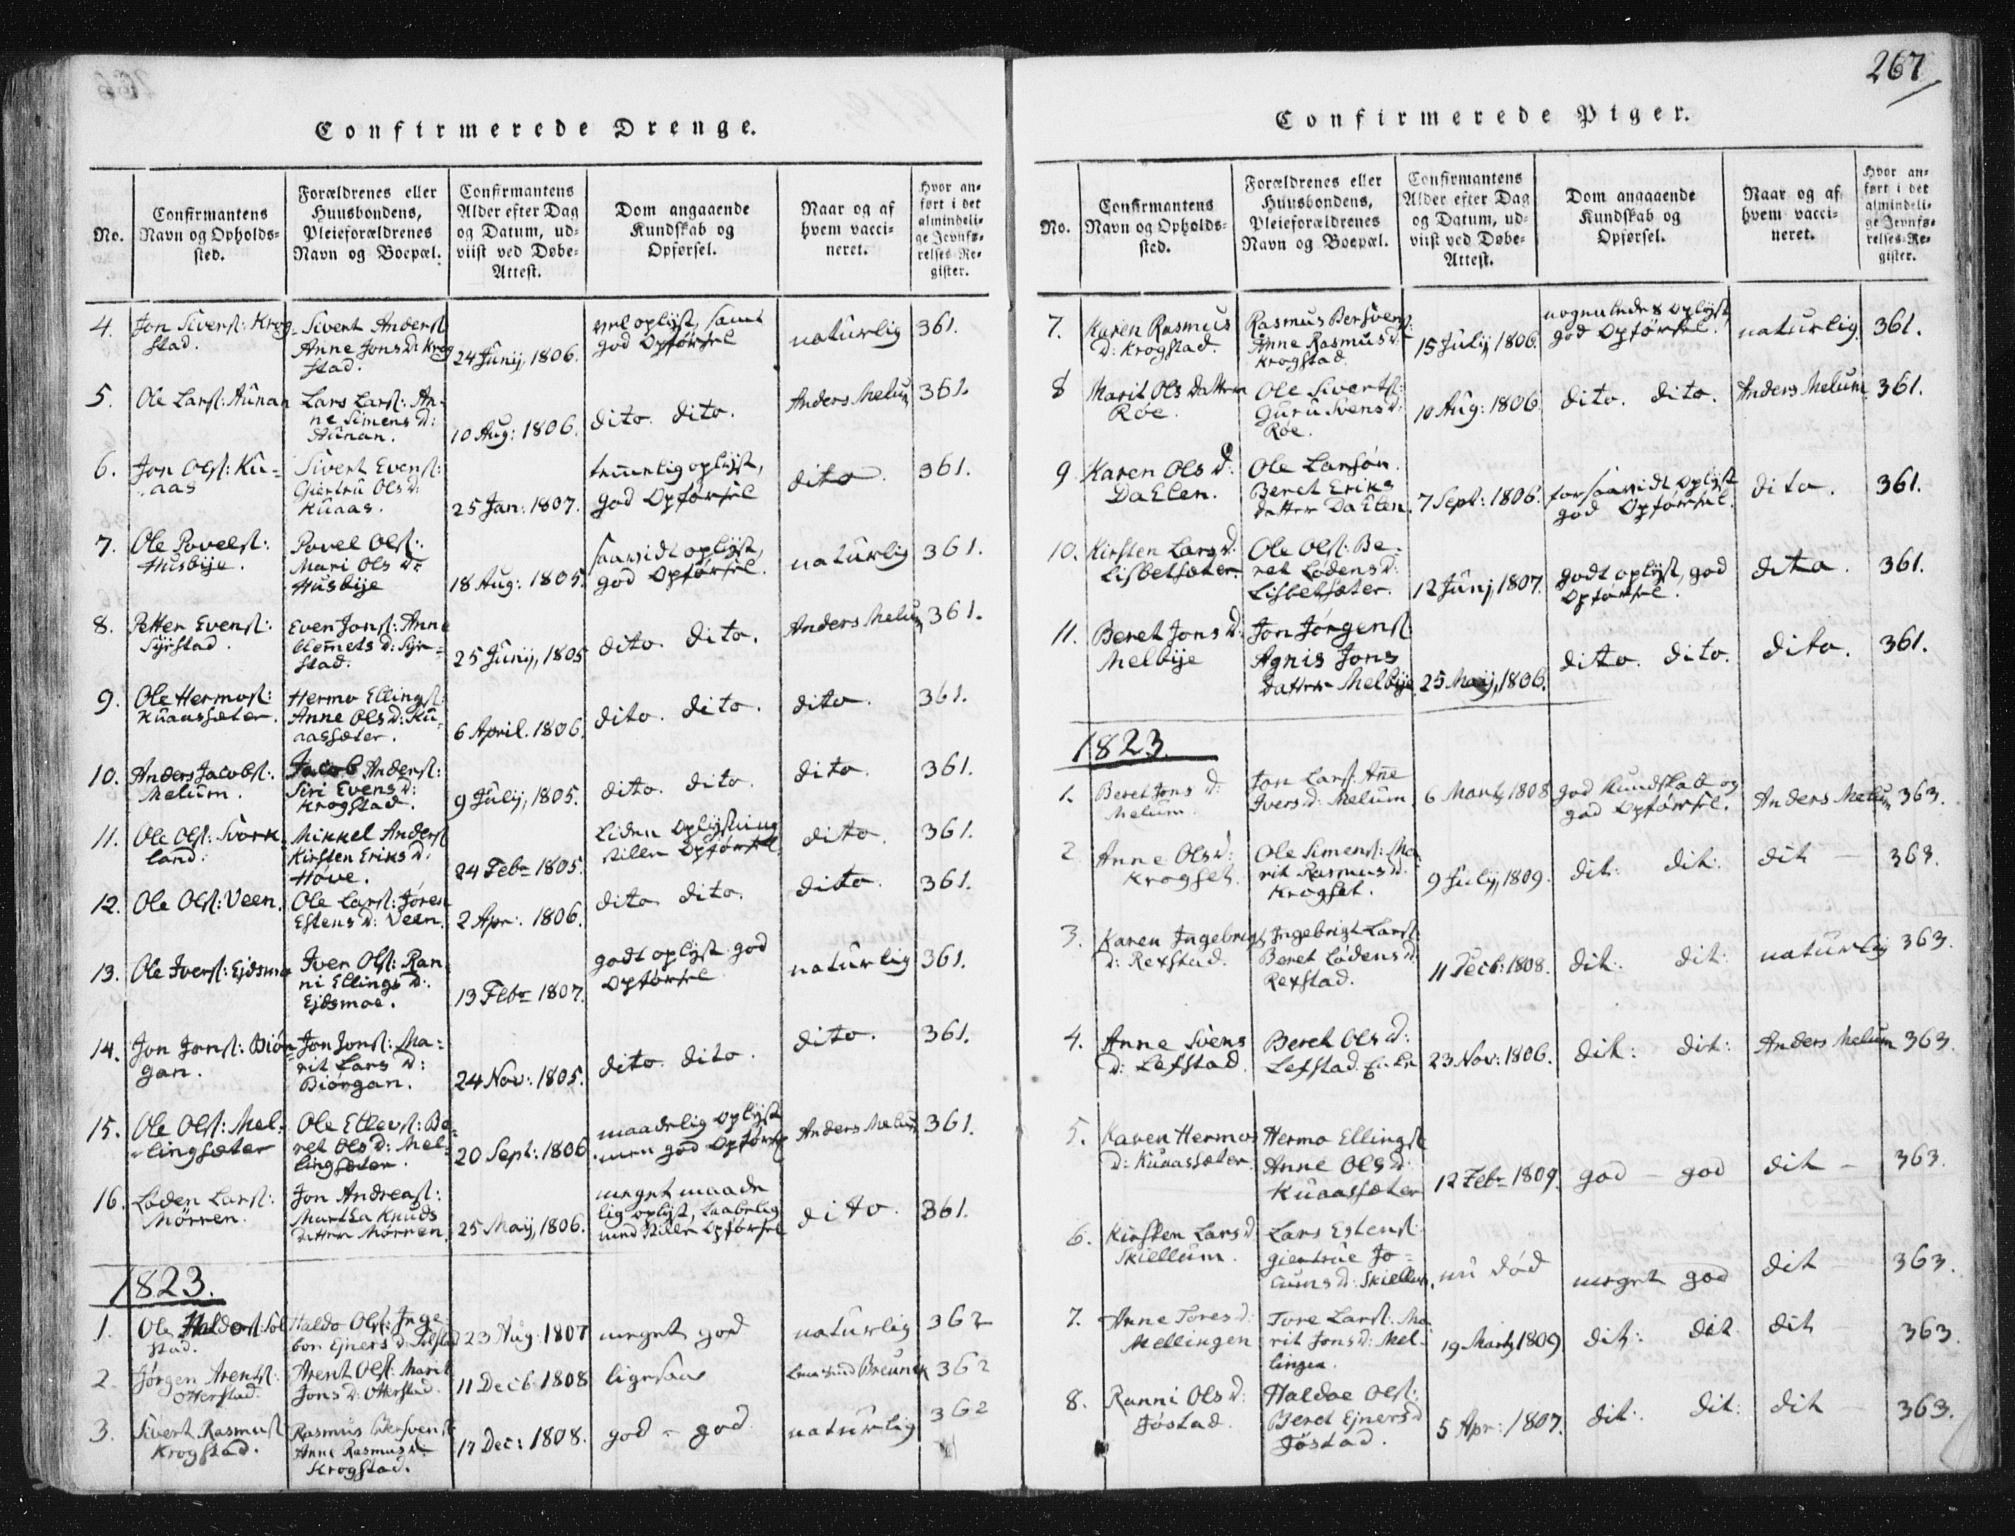 267
Confirmerede Drenge.
No.
Confirmantens
Navn og Opholds-
sted.
Forældrenes eller
Huusbondens,
Pleieforældrenes
Navn og Boepæl.
Confirmantens
Alder efter Dag
og Datum, ud-
viist ved Døbe-
Attest.
Dom angaaende
Kundskab og
Opførsel.
Naar og af
hvem vacci-
neret.
Hvor an-
ført i det
almindeli-
ge Jevnfø-
relses-Re-
gister.
4. Jon Siverst: Krog-
stad.
Sivert Anderst
Anne Jons D: Krog
stad.
24 Junij, 1806.
vel oplyst, samt
god Opførsel
naturlig
361.
5. Ole Larst: Aunan
Lars Larst: An-
ne Simens D:
Aunan.
10 Aug: 1806.
dito. dito.
Anders Melum
361.
6. Jon Olst: Ku-
aas
Sivert Evenst:
Giertru Ols D:
Kuaas.
25 Jan: 1807.
god Opførsel
dito.
361.
7. Ole Povelst:
Husbije.
Povel Olst:
Mari Ols D:
Husbije
18 Aug: 1805.
saavidt oplyst,
god Opførsel.
naturlig
361.
8. Petter Evenst:
Syrstad.
Even Jonst: Anne
Clemets D: Syr-
stad.
25 Junij, 1805
dito dito.
Anders Melum
361.
9. Ole Hermost:
Kuaassæter.
Hermo Ellingst:
Anne Ols D: Ku-
aassæter.
6 April. 1806.
dito. dito.
dito.
361.
10. Anders Jacobst:
Melum.
Jacob Anderst:
Siri Evens D:
Krogstad.
9 Julij, 1805.
dito dito.
dito.
361.
11. Ole Olst: Svork-
land:
Mikkel Anderst
Kirsten Eriks D:
Hove.
24 Febr 1805.
Liden Oplysning
stille Opførsel
dito.
361.
12. Ole Olst: Veen.
Ole Larst: Jøren
Estens D: Veen.
2 Apr: 1806.
dito dito.
dito.
361.
13. Ole Iverst: Ejdsmo
Iver Olst: Ran-
ni Ellings D:
Ejdsmoe.
13 Febr 1807.
godt oplyst god
Opførsel
naturlig
361.
14. Jon Jonst: Biør-
gan.
Jon Jonst: Ma-
rit Lars D:
Biørgan.
24 Nov: 1805.
dito dito.
dito.
361.
15. Ole Olst: Mel-
lingsæter
Ole Ellevst: Be-
ret Ols D: Mel-
lingsæter.
20 Sept: 1806
maadelig oplyst
men god Opførsel
Anders Melum
361.
16. Loden Larst:
Mørren.
Jon Andreast:
Martha Knuds
datter Mørren.
25 Maij, 1806.
meget maade
lig oplyst,
med stille Opførsel
dito.
361.
1823.
1. Ole Haldost: Sol
stad.
Haldo Olst: Inge
bor Ejners D: Solstad
23 Aug: 1807
meget god
naturlig
362
2. Jørgen Arentst:
Otterstad.
Arent Olst: Marit
Jons D: Otterstad.
11 Decb 1808
ligesaa
362
3. Sivert Rasmust
Krogstad.
Rasmus
Anne Rasmus D
Krogstad.
17 Dec: 1808.
god - god
naturlig
362
Confirmerede Piger.
No.
Confirmantens
Navn og Opholds-
sted.
Forældrenes eller
Huusbondens,
Pleieforældrenes
Navn og Boepæl.
Confirmantens
Alder efter Dag
og Datum, ud-
viist ved Døbe-
Attest.
Dom angaaende
Kundskab og
Opførsel.
Naar og af
hvem vacci-
neret.
Hvor an-
ført i det
almindeli-
ge Jevnfø-
relses-Re-
gister.
7. Karen Rasmus
D: Krogstad.
Rasmus
Anne Rasmus D:
Krogstad
15 Julij 1806.
nogenledes Oplyst
god Opførsel.
naturlig.
361.
8 Marit Ols Datter
Roe.
Ole Sivertst:
Guru Svens D:
Roe.
10 Aug: 1806
dito. dito.
Anders Melum
361.
9 Karen Ols D:
Dahlen.
Ole Larsøn.
Beret Eriks
datter Dahlen.
7 Sept: 1806.
forsaavidt oplyst
god Opførsel.
dito.
361.
10. Kirsten Lars D:
Lisbetsæter.
Ole Olst: Be-
ret Lødens D:
Lisbetsæter.
12 Junj 1807.
godt oplyst, god
Opførsel.
dito.
361.
11. Beret Jons D:
Melbije
Jon Jørgenst
Agnis Jons
datter Melbije
25 Maij, 1806.
dito. dito.
dito.
361.
1823.
1. Beret Jons D:
Melum.
Jon Larst: Anne
Ivers D: Melum.
6 Marts 1808
god Kundskab og
god Opførsel.
Anders Melum
363.
2 Anne Ols D:
Krogset.
Ole Simenst: Ma
rit Rasmus D:
Krogset.
9 Julij 1809.
dit: dit:
dit -
363.
3. Karen Ingebrigts
D: Rexstad.
Ingebrigt Larst:
Beret Lødens D
Rexstad.
11 Decb: 1808.
dit: dit:
naturlig
363.
4. Anne Svens
D: Lefstad.
Beret Ols D:
Lefstad.
23 Nov: 1806.
dit: dit:
Anders Melum
363.
5. Karen Hermos
D: Kuaassæter.
Hermo Ellingst
Anne Ols D:
Kuaassæter
12 Febr 1809.
god - god
dit -
363.
6. Kirsten Lars D
Skiellum.
Lars Estenst:
Giertrue Jo-
cums D: Skiellum.
nu død
meget god
dit -
363.
7. Anne Tores D:
Mellingen
Tore Larst: Ma
rit Jons D: Mel-
lingen.
19 Marts 1809
dit: dit
dit
363.
8. Ranni Ols D:
Jøstad.
Haldoe Olst:
Beret Ejners D
Jøstad.
5 Apr: 1807.
dit: dit:
dit -
363.